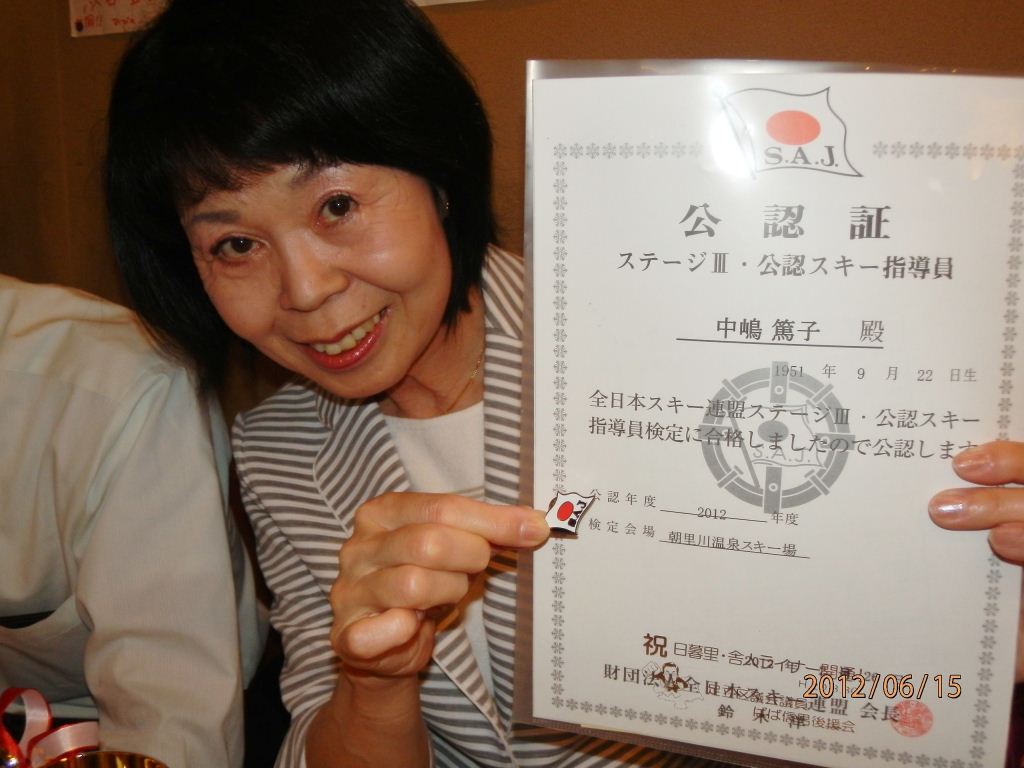 S.A.J.
公認証
ステージⅢ・公認スキー指導員
中嶋 篤子 殿
1951 年 9 月 22 日生
全日本スキー連盟ステージⅢ・公認スキー
指導員検定に合格しましたので公認します
S.A.J.
公認年度 2012 年度
検定会場 朝里川温泉スキー場
祝 日暮里・舎人ライナー開通
財団法人全日本スキー連盟 会長
足立区議会議員
鈴木
後援会
2012/06/15